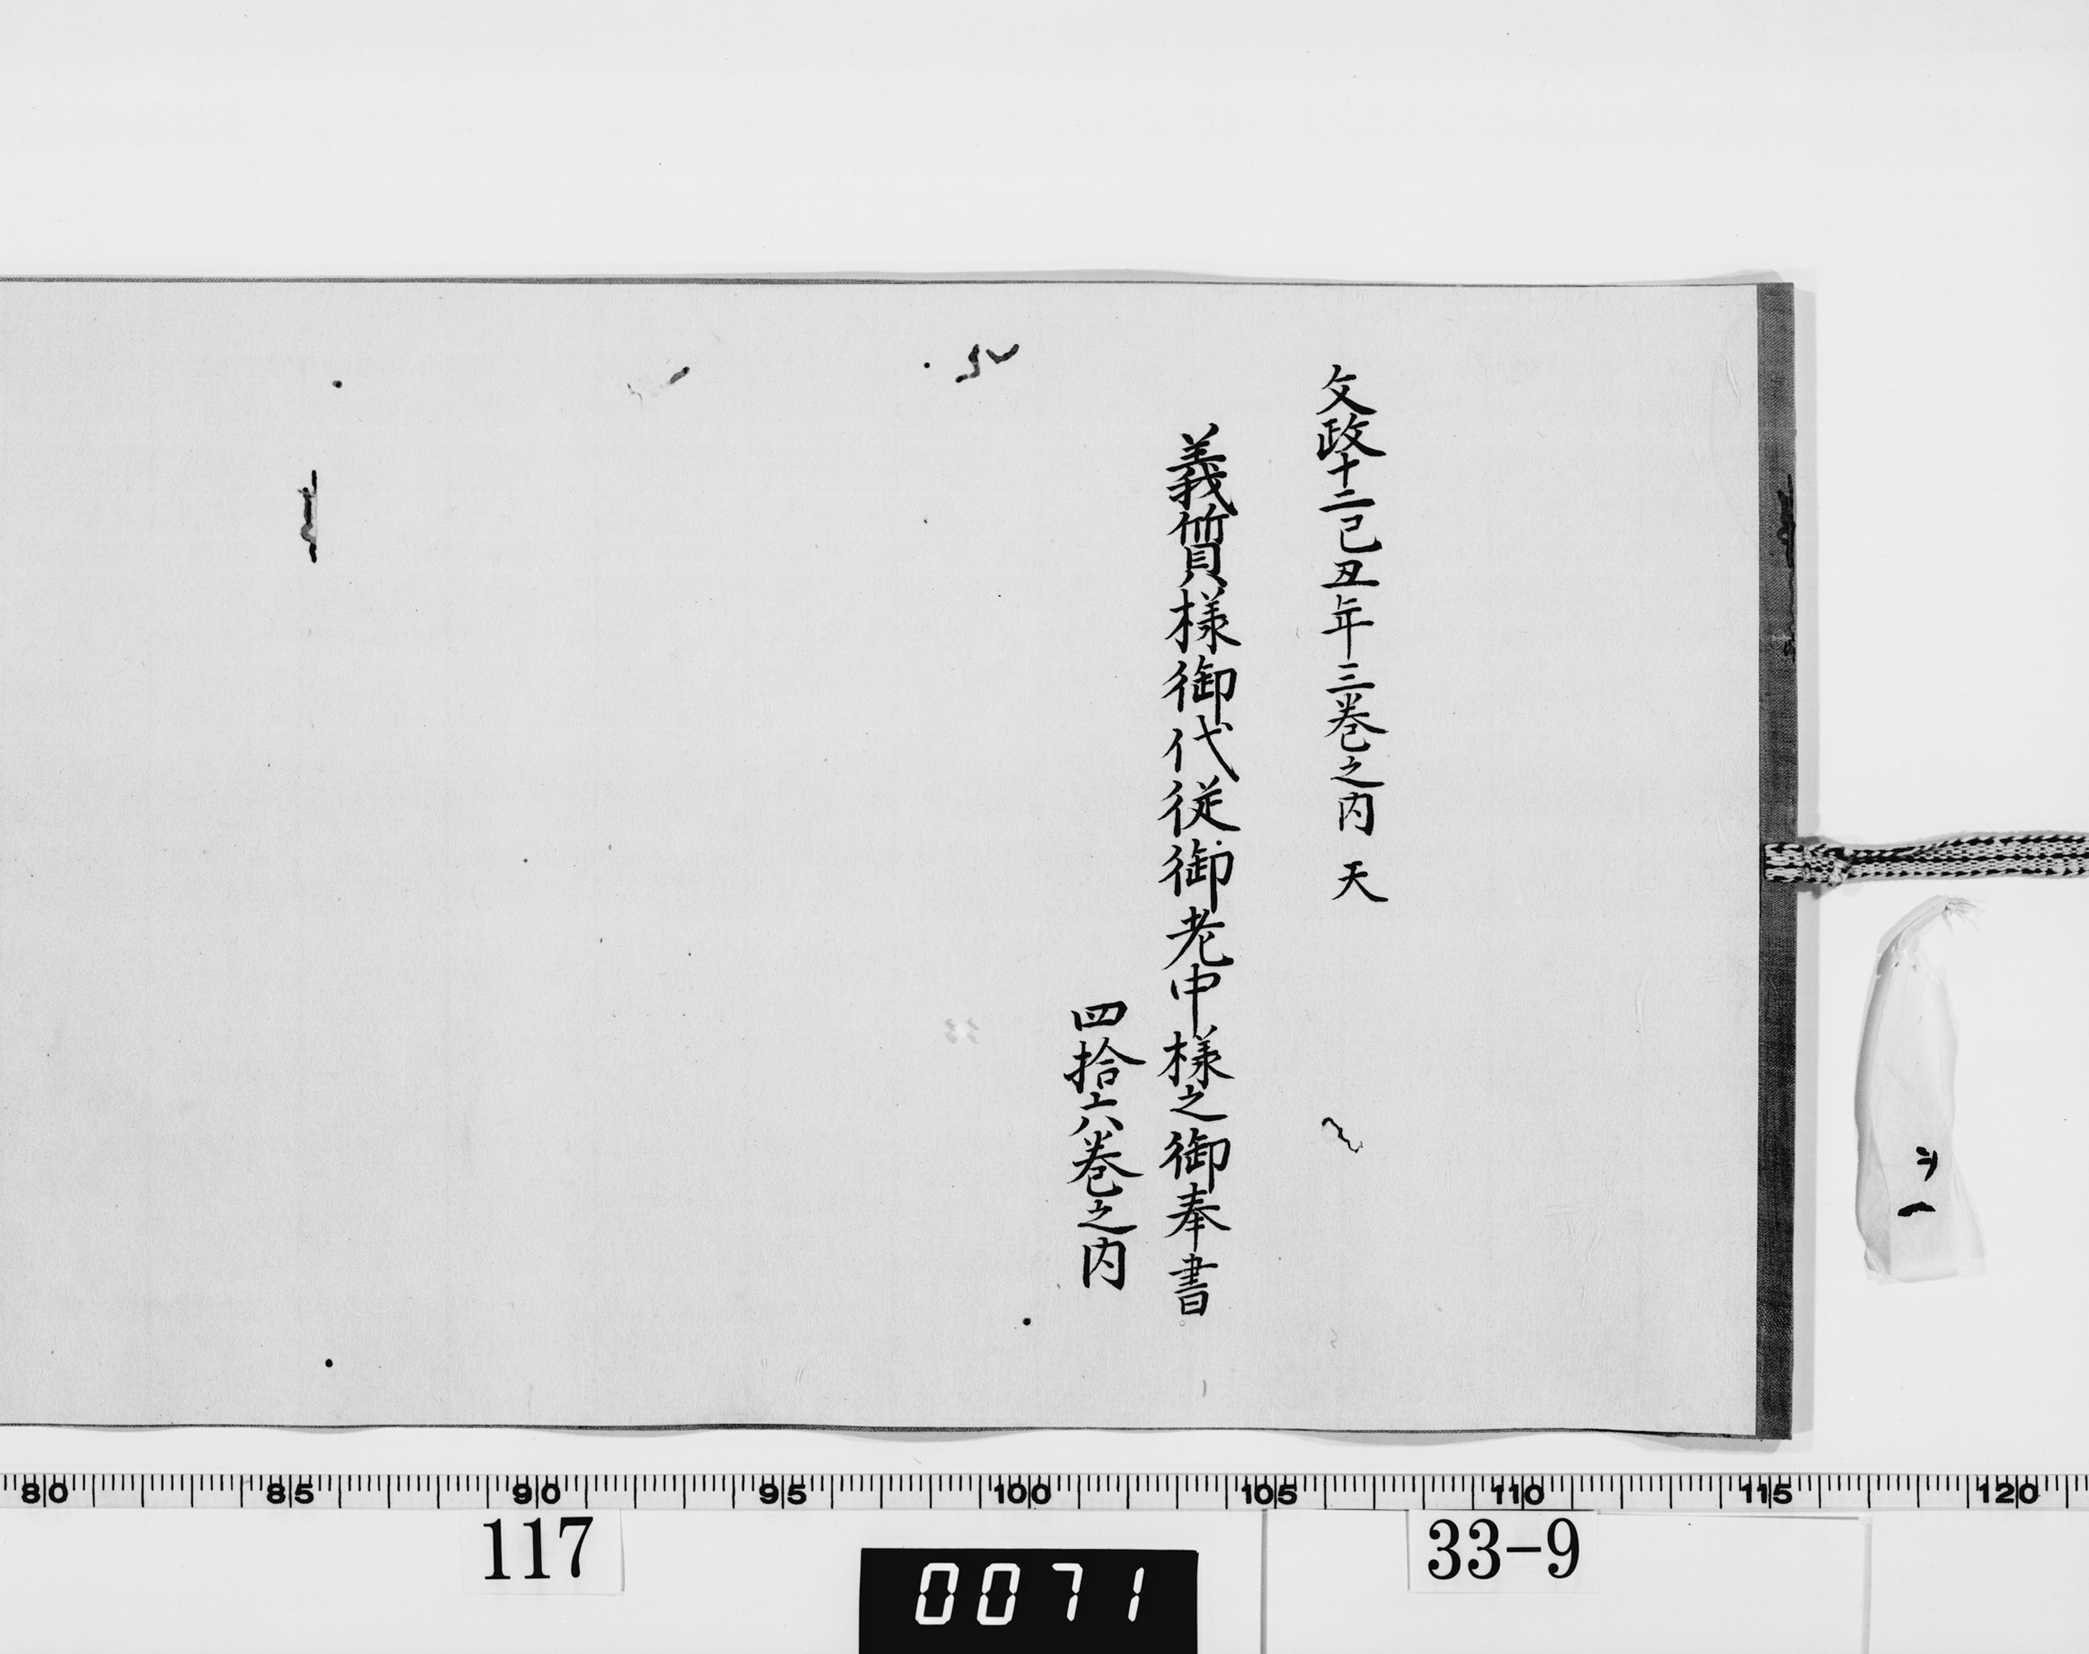 文政十二己丑年三巻之内　天
義質様御代従御老中様之御奉書
四拾六巻之内
80 85 90 95 100 105 110 115 120
117
0071
33-9